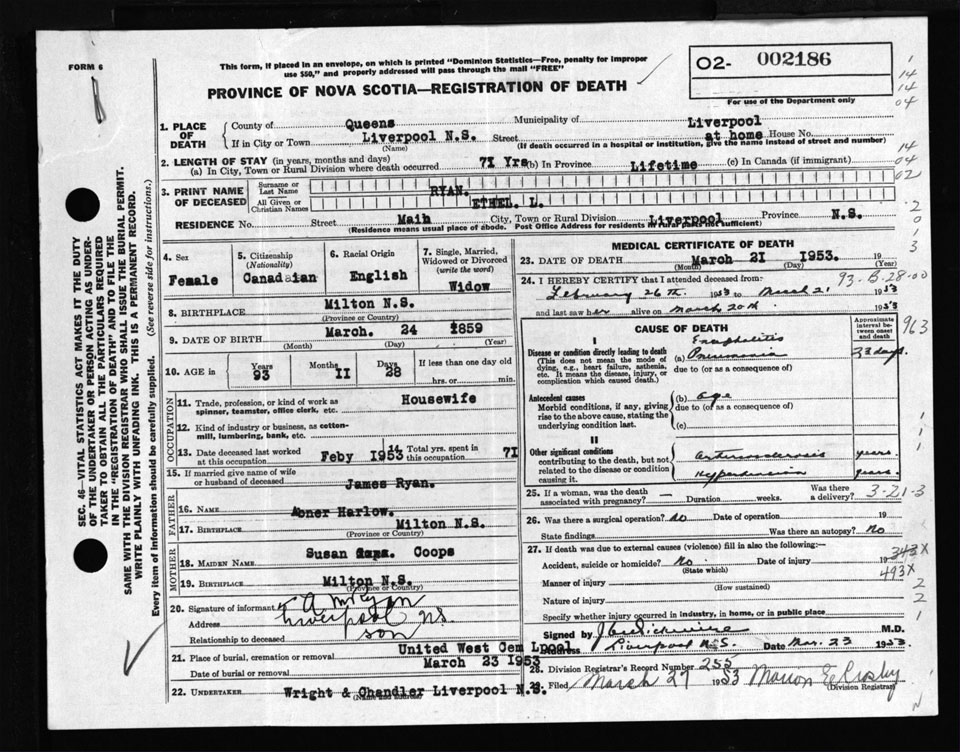 FORM 6
This form, if placed in an envelope, on which is printed "Dominion Statistics—Free, penalty for improper
use $50," and properly addressed will pass through the mail "FREE"
PROVINCE OF NOVA SCOTIA—REGISTRATION OF DEATH
O2- 002186
For use of the Department only
1. PLACE OF DEATH
County of Queens Municipality of Liverpool
If in City or Town Liverpool N.S. Street at home House No.
(Name) (If death occurred in a hospital or institution, give the name instead of street and number)
2. LENGTH OF STAY (in years, months and days)
(a) In City, Town or Rural Division where death occurred 71 Yrs (b) In Province Lifetime (c) In Canada (if immigrant)
3. PRINT NAME OF DECEASED
Surname or Last Name RYAN.
All Given or Christian Names ETHEL. L.
RESIDENCE No. Street Main City, Town or Rural Division Liverpool Province N.S.
(Residence means usual place of abode. Post Office Address for residents in rural parts not sufficient)
4. Sex
Female
5. Citizenship
(Nationality)
Canadaian
6. Racial Origin
English
7. Single, Married,
Widowed or Divorced
(write the word)
Widow
8. BIRTHPLACE Milton N.S.
(Province or Country)
9. DATE OF BIRTH March. 24 1859
(Month) (Day) (Year)
10. AGE in
Years 93
Months 11
Days 28
If less than one day old
hrs. or min.
OCCUPATION
11. Trade, profession, or kind of work as
spinner, teamster, office clerk, etc. Housewife
12. Kind of industry or business, as cotton-
mill, lumbering, bank, etc.
13. Date deceased last worked
at this occupation Feby 1953
14 Total yrs. spent in
this occupation 71
15. If married give name of wife
or husband of deceased James Ryan.
FATHER
16. NAME Abner Harlow.
17. BIRTHPLACE Milton N.S.
(Province or Country)
MOTHER
18. MAIDEN NAME Susan Coops
19. BIRTHPLACE Milton N.S.
(Province or Country)
20. Signature of informant A M Ryan
Address Liverpool NS.
Relationship to deceased son
21. Place of burial, cremation or removal United West Cem Lpool
Date of burial or removal March 23 1953
22. UNDERTAKER Wright & Chandler Liverpool N.S.
(Name and address)
MEDICAL CERTIFICATE OF DEATH
23. DATE OF DEATH March 21 1953. 19
(Month) (Day) (Year)
24. I HEREBY CERTIFY that I attended deceased from:
February 26th 1953 to March 21 1953
and last saw her alive on March 20th 1953
CAUSE OF DEATH
Approximate
interval be-
tween onset
and death
I
Disease or condition directly leading to death
(This does not mean the mode of
dying, e.g., heart failure, asthenia,
etc. It means the disease, injury, or
complication which caused death.)
(a) Pneumonia
due to (or as a consequence of)
days.
Antecedent causes
Morbid conditions, if any, giving
rise to the above cause, stating the
underlying condition last.
(b) age
due to (or as a consequence of)
(c)
II
Other significant conditions
contributing to the death, but not
related to the disease or condition
causing it.
Arteriosclerosis years.
Hypertension years.
25. If a woman, was the death
associated with pregnancy? — Duration weeks. Was there
a delivery?
3-21-3
26. Was there a surgical operation? No Date of operation 19
State findings Was there an autopsy? No
27. If death was due to external causes (violence) fill in also the following:—
Accident, suicide or homicide? No. Date of injury 19
(State which)
Manner of injury
(How sustained)
Nature of injury
Specify whether injury occurred in industry, in home, or in public place
Signed by M.D.
Address Liverpool N.S. Date Mar. 23 1953
28. Division Registrar's Record Number 255
29. Filed March 27 1953 Marion E Crosby
(Division Registrar)
93-B-28-00
963
343X
493X
1
14
14
04
14
04
02
2
0
1
3
SEC. 46—VITAL STATISTICS ACT MAKES IT THE DUTY
OF THE UNDERTAKER OR PERSON ACTING AS UNDER-
TAKER TO OBTAIN ALL THE PARTICULARS REQUIRED
IN THE "REGISTRATION OF DEATH" AND TO FILE THE
SAME WITH THE DIVISION REGISTRAR WHO SHALL ISSUE THE BURIAL PERMIT.
WRITE PLAINLY WITH UNFADING INK. THIS IS A PERMANENT RECORD.
Every item of information should be carefully supplied. (See reverse side for instructions.)